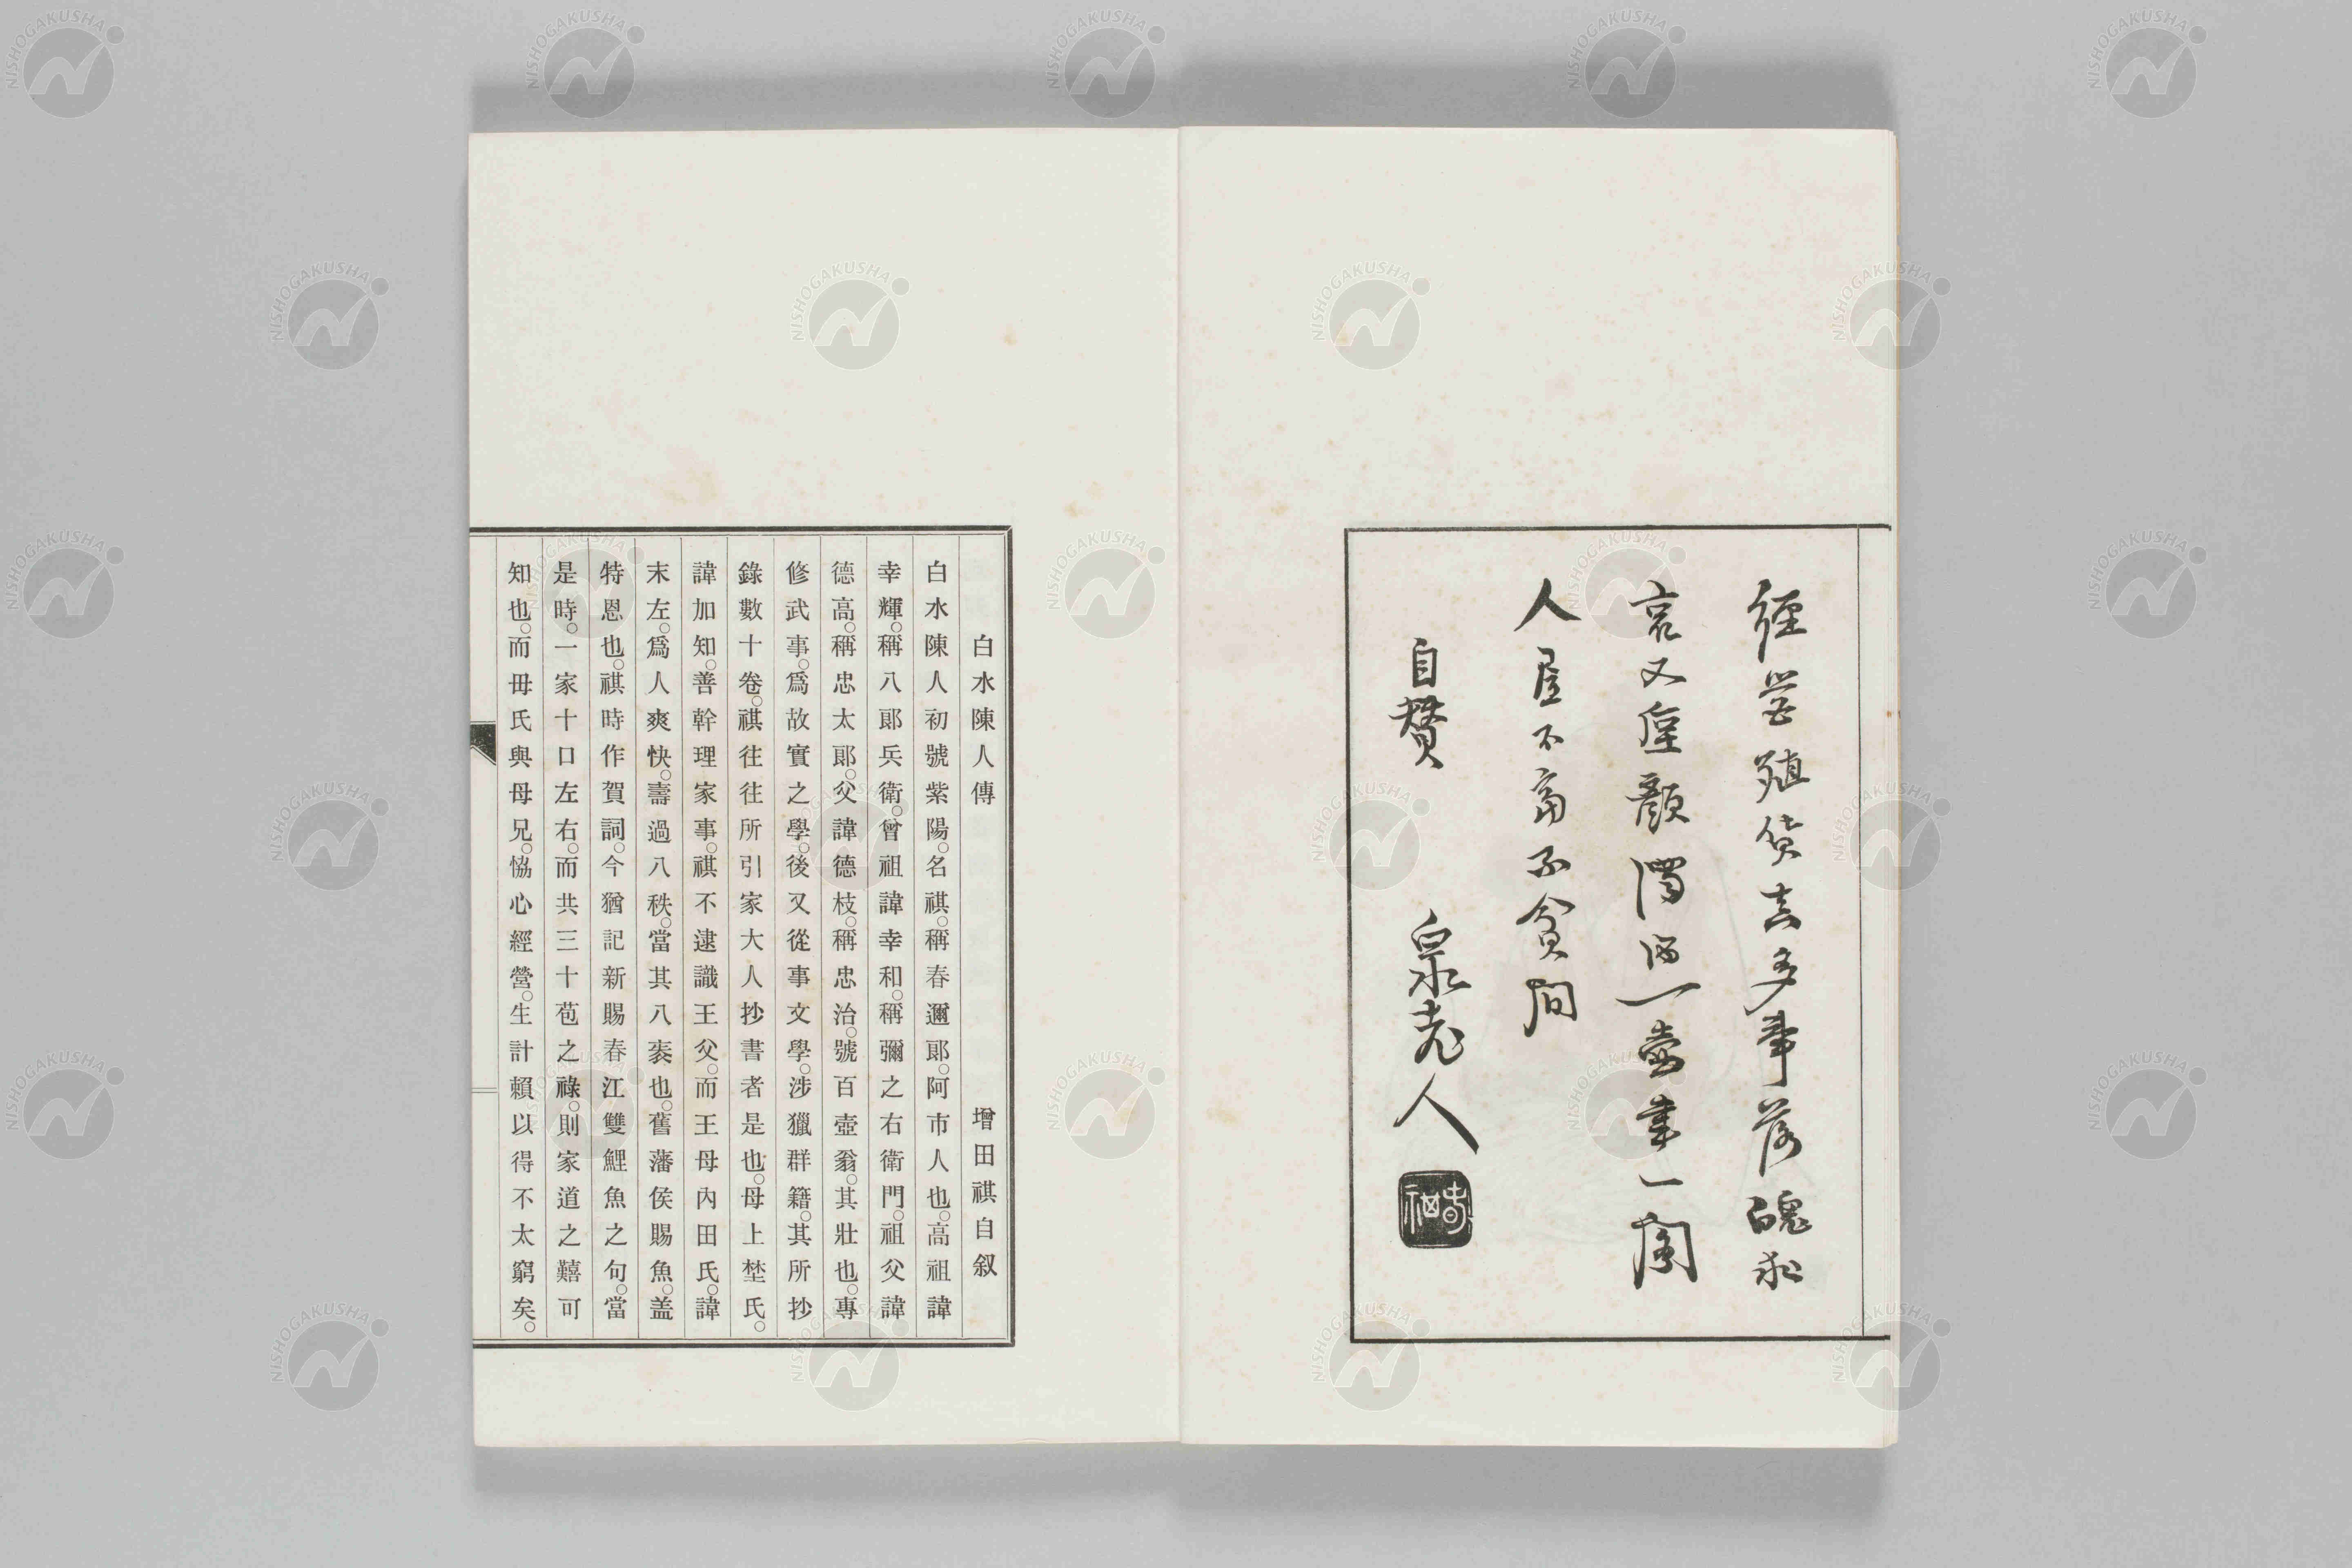 經營殖貨多事落魄求
哀又厚顏濁酒一壺書一閣
人居不富不貧間
自贊　白泉老人
白水陳人傳　增田祺自叙
白水陳人初號紫陽。名祺。稱春邇郎。阿市人也。高祖諱
幸輝。稱八郎兵衛。曾祖諱幸和。稱彌之右衛門。祖父諱
德高。稱忠太郎。父諱德枝。稱忠治。號百壺翁。其壯也。專
修武事。爲故實之學。後又從事文學。涉獵群籍。其所抄
錄數十卷。祺往往所引家大人抄書者是也。母上埜氏。
諱加知。善幹理家事。祺不逮識王父。而王母內田氏。諱
末左。爲人爽快。壽過八秩。當其八袠也。舊藩侯賜魚。盖
特恩也。祺時作賀詞。今猶記新賜春江雙鯉魚之句。當
是時。一家十口左右。而共三十苞之祿。則家道之囏可
知也。而毌氏與母兄。恊心經營。生計賴以得不太窮矣。
NISHOGAKUSHA